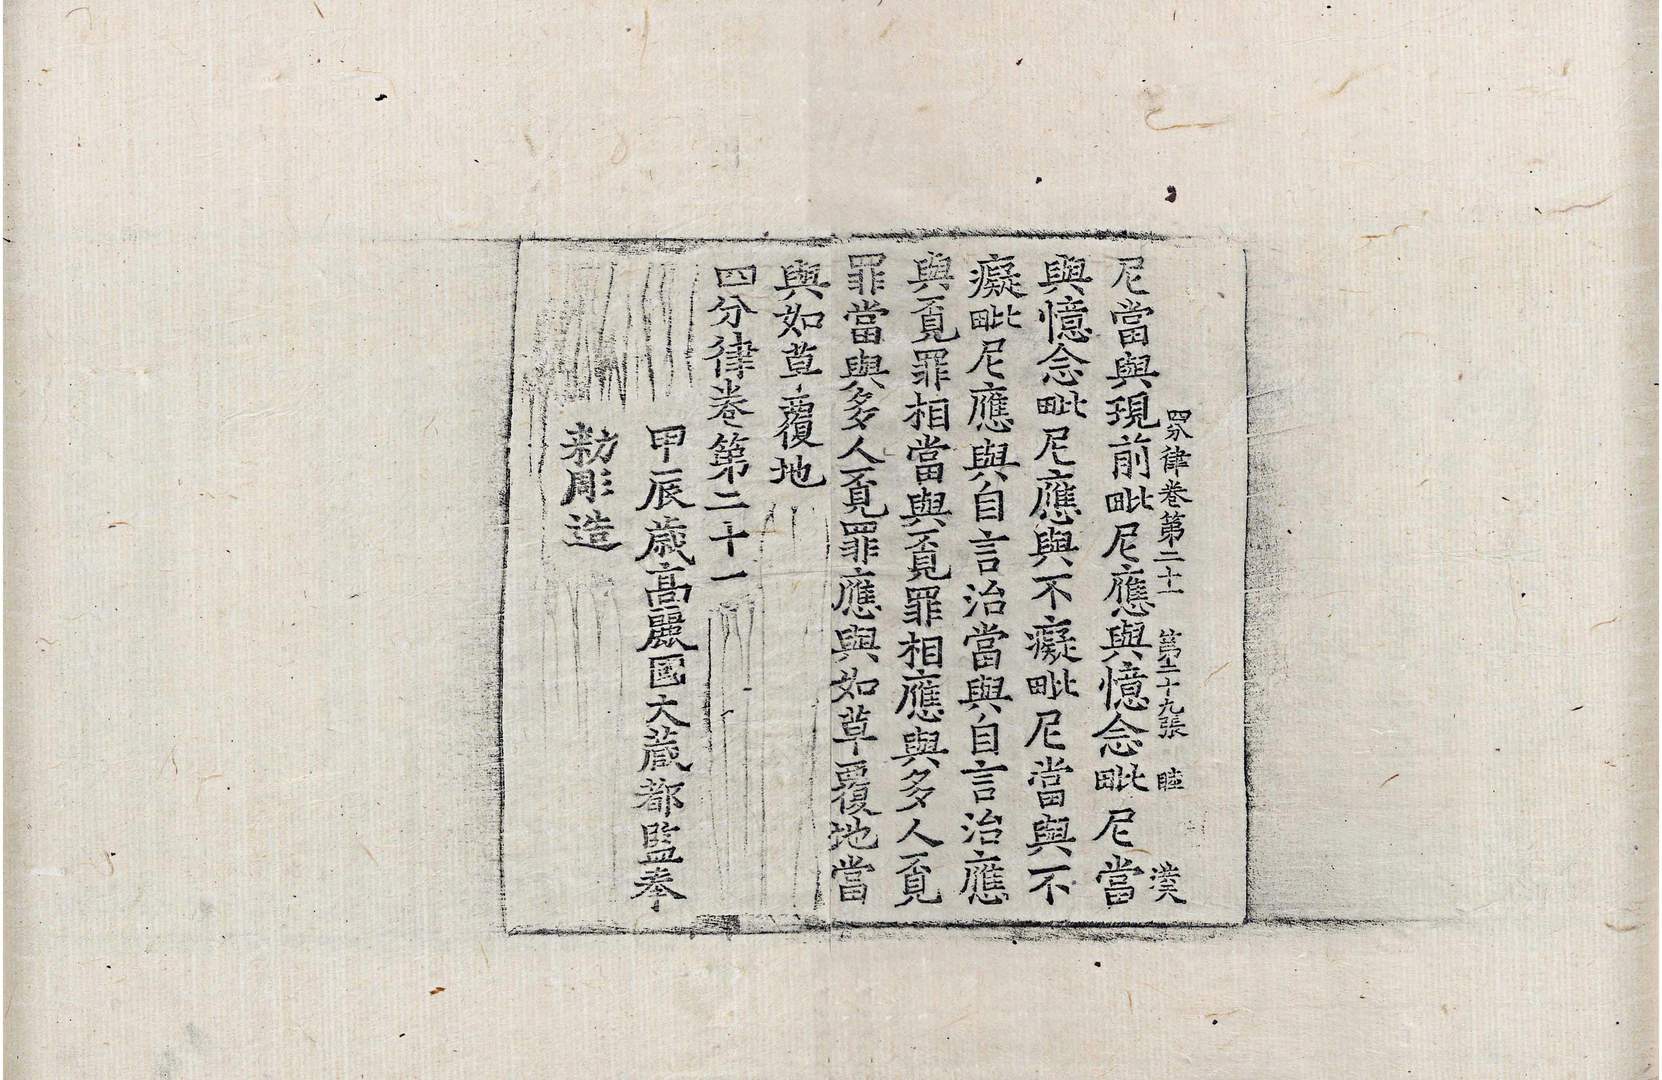 四分律卷第二十一 第二十九張 睦
尼當與現前毗尼應與憶念毗尼當
與憶念毗尼應與不癡毗尼當與不
癡毗尼應與自言治當與自言治應
與覔罪相當與覔罪相應與多人覔
罪當與多人覔罪應與如草覆地當
與如草覆地
四分律卷第二十一
甲辰歲高麗國大藏都監奉
勑彫造